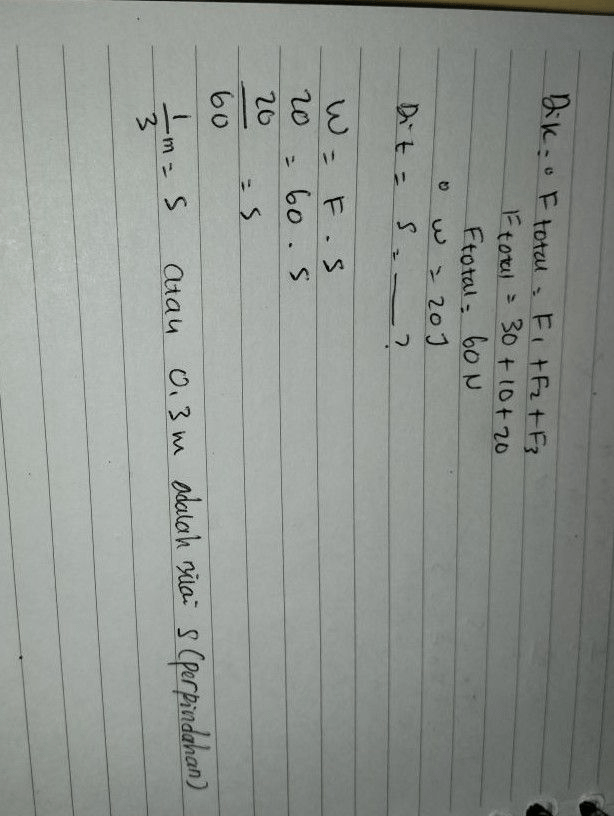 Dik : ° F total = F1 + F2 + F3
F total = 30 + 10 + 20
F total = 60 N
° W = 20 J
Dit = S = __ ?
W = F . S
20 = 60 . S
20/60 = S
1/3 m = S atau 0,3 m adalah nilai S (perpindahan)